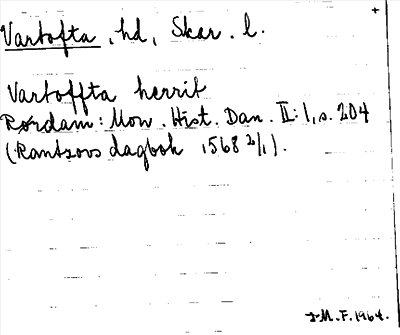 +
Vartofta, hd, Skar. l.
Vartoffta herrit
Rørdam: Mon. Hist. Dan. II: 1, s. 204
(Rantzovs dagbok 1568 2/1).
J.M.F. 1964.